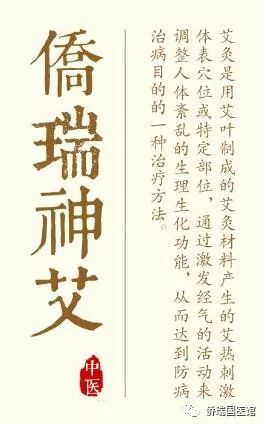 僑瑞神艾
中医
艾灸是用艾叶制成的艾灸材料产生的艾热刺激
体表穴位或特定部位，通过激发经气的活动来
调整人体紊乱的生理生化功能，从而达到防病
治病目的的一种治疗方法。
侨瑞国医馆